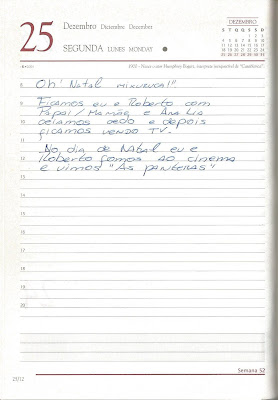 25
Dezembro Diciembre December
SEGUNDA LUNES MONDAY
DEZEMBRO
S T Q Q S S D
1 2 3
4 5 6 7 8 9 10
11 12 13 14 15 16 17
18 19 20 21 22 23 24
25 26 27 28 29 30 31
1899 - Nasce o ator Humphrey Bogart, intérprete inesquecível de "Casablanca".
8 Oh! Natal mixuruca!"
9 Ficamos eu e Roberto com
Papai / Mamãe e Ana Lia
10 ceiamos cedo e depois
ficamos vendo TV.
11 No dia de Natal eu e
12 Roberto fomos ao cinema
e vimos "As panteras"
13
14
15
16
17
18
19
20
Semana 52
25/12